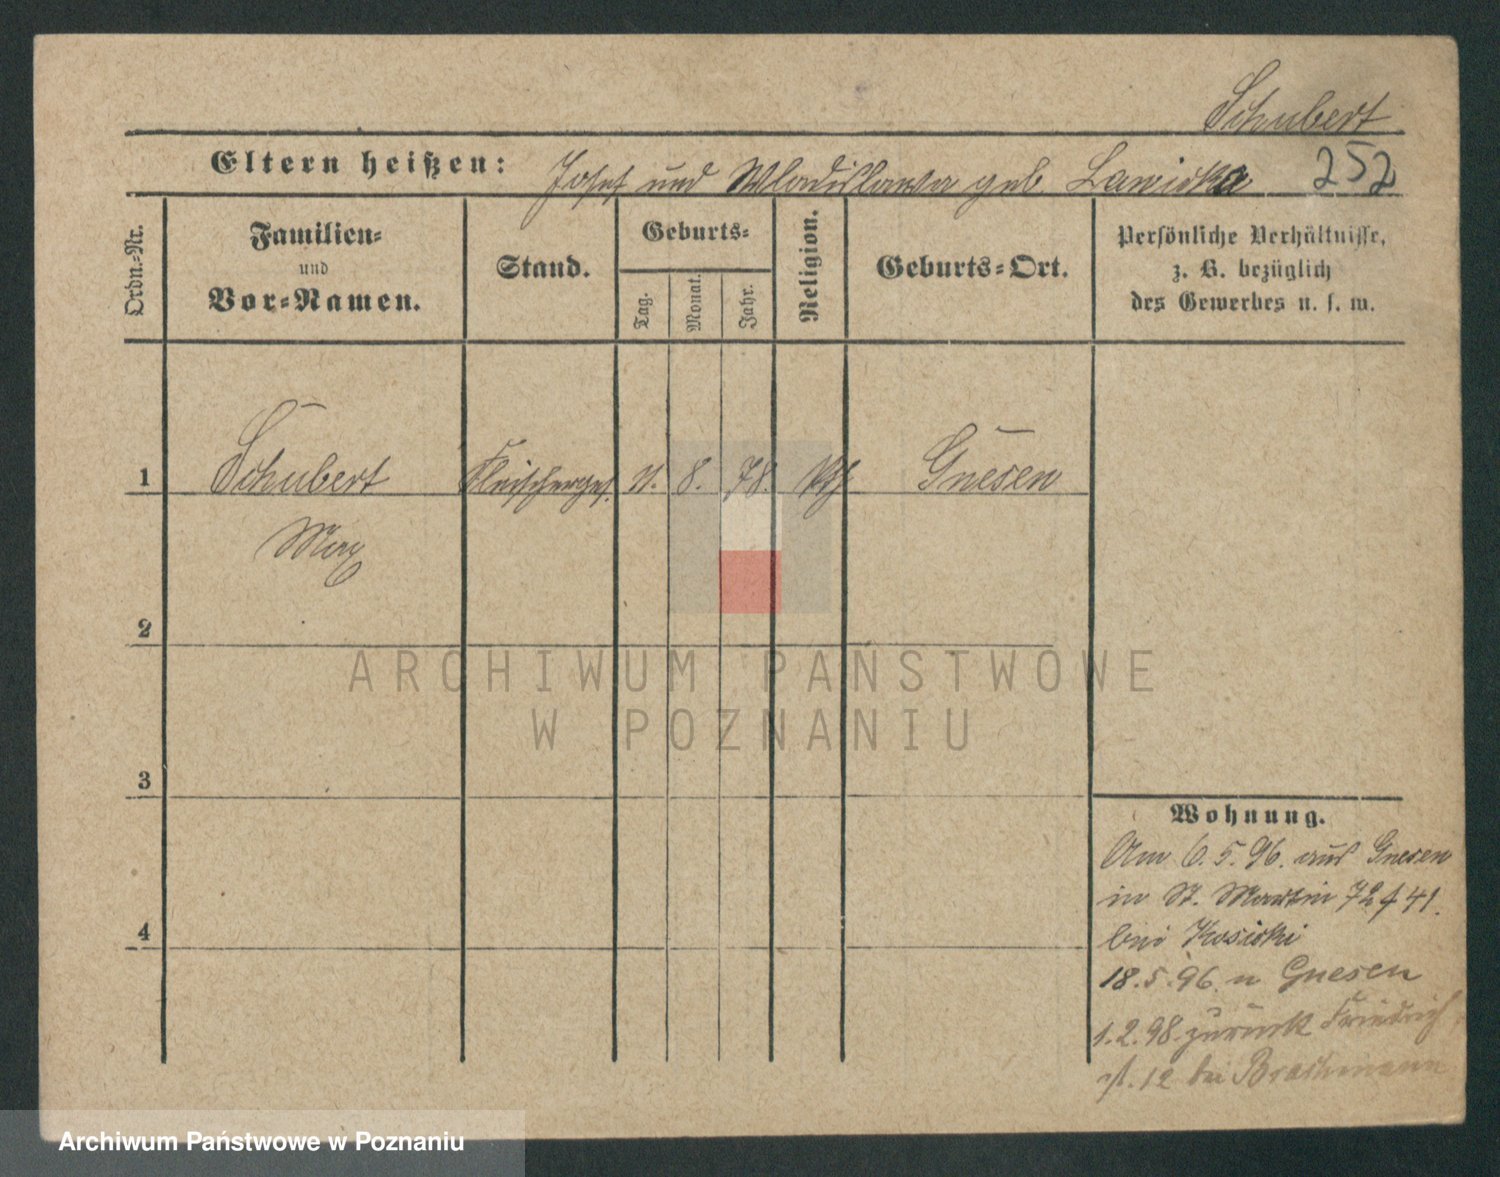 Schubert
Eltern heißen: Josef und Wladislawa geb Lawicka 252
Ordn.-Nr.
Familien-
und
Vor-Namen.
Stand.
Geburts-
Tag.
Monat.
Jahr.
Religion.
Geburts-Ort.
Persönliche Verhältnisse,
z. B. bezüglich
des Gewerbes u. s. w.
1 Schubert Fleischerges. 8. 78. kth Gnesen
Max
2
3
4
ARCHIWUM PAŃSTWOWE
W POZNANIU
Wohnung.
Am 6.5.96. aus Gnesen
in St. Martin 72 41.
bei Kosicki
18.5.96. n Gnesen
1.2.98. zurück Friedrich
st. 12 bei Brachmann
Archiwum Państwowe w Poznaniu